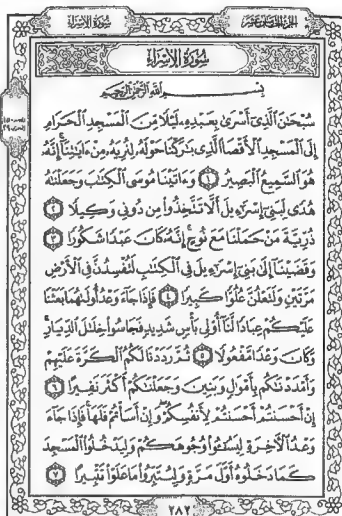 الجزء الخامس عشر
سورة الإسراء
سُورَةُ الإِسْرَاءِ
بِسْمِ اللَّهِ الرَّحْمَٰنِ الرَّحِيمِ
سُبْحَٰنَ ٱلَّذِىٓ أَسْرَىٰ بِعَبْدِهِۦ لَيْلًا مِّنَ ٱلْمَسْجِدِ ٱلْحَرَامِ
إِلَى ٱلْمَسْجِدِ ٱلْأَقْصَا ٱلَّذِى بَٰرَكْنَا حَوْلَهُۥ لِنُرِيَهُۥ مِنْ ءَايَٰتِنَآ إِنَّهُۥ
هُوَ ٱلسَّمِيعُ ٱلْبَصِيرُ ١ وَءَاتَيْنَا مُوسَى ٱلْكِتَٰبَ وَجَعَلْنَٰهُ
هُدًى لِّبَنِىٓ إِسْرَٰٓءِيلَ أَلَّا تَتَّخِذُوا۟ مِن دُونِى وَكِيلًا ٢
ذُرِّيَّةَ مَنْ حَمَلْنَا مَعَ نُوحٍ إِنَّهُۥ كَانَ عَبْدًا شَكُورًا ٣
وَقَضَيْنَآ إِلَىٰ بَنِىٓ إِسْرَٰٓءِيلَ فِى ٱلْكِتَٰبِ لَتُفْسِدُنَّ فِى ٱلْأَرْضِ
مَرَّتَيْنِ وَلَتَعْلُنَّ عُلُوًّا كَبِيرًا ٤ فَإِذَا جَآءَ وَعْدُ أُولَىٰهُمَا بَعَثْنَا
عَلَيْكُمْ عِبَادًا لَّنَآ أُو۟لِى بَأْسٍ شَدِيدٍ فَجَاسُوا۟ خِلَٰلَ ٱلدِّيَارِ
وَكَانَ وَعْدًا مَّفْعُولًا ٥ ثُمَّ رَدَدْنَا لَكُمُ ٱلْكَرَّةَ عَلَيْهِمْ
وَأَمْدَدْنَٰكُم بِأَمْوَٰلٍ وَبَنِينَ وَجَعَلْنَٰكُمْ أَكْثَرَ نَفِيرًا ٦
إِنْ أَحْسَنتُمْ أَحْسَنتُمْ لِأَنفُسِكُمْ وَإِنْ أَسَأْتُمْ فَلَهَا فَإِذَا جَآءَ
وَعْدُ ٱلْءَاخِرَةِ لِيَسُۥٓـُٔوا۟ وُجُوهَكُمْ وَلِيَدْخُلُوا۟ ٱلْمَسْجِدَ
كَمَا دَخَلُوهُ أَوَّلَ مَرَّةٍ وَلِيُتَبِّرُوا۟ مَا عَلَوْا۟ تَتْبِيرًا ٧
٢٨٢